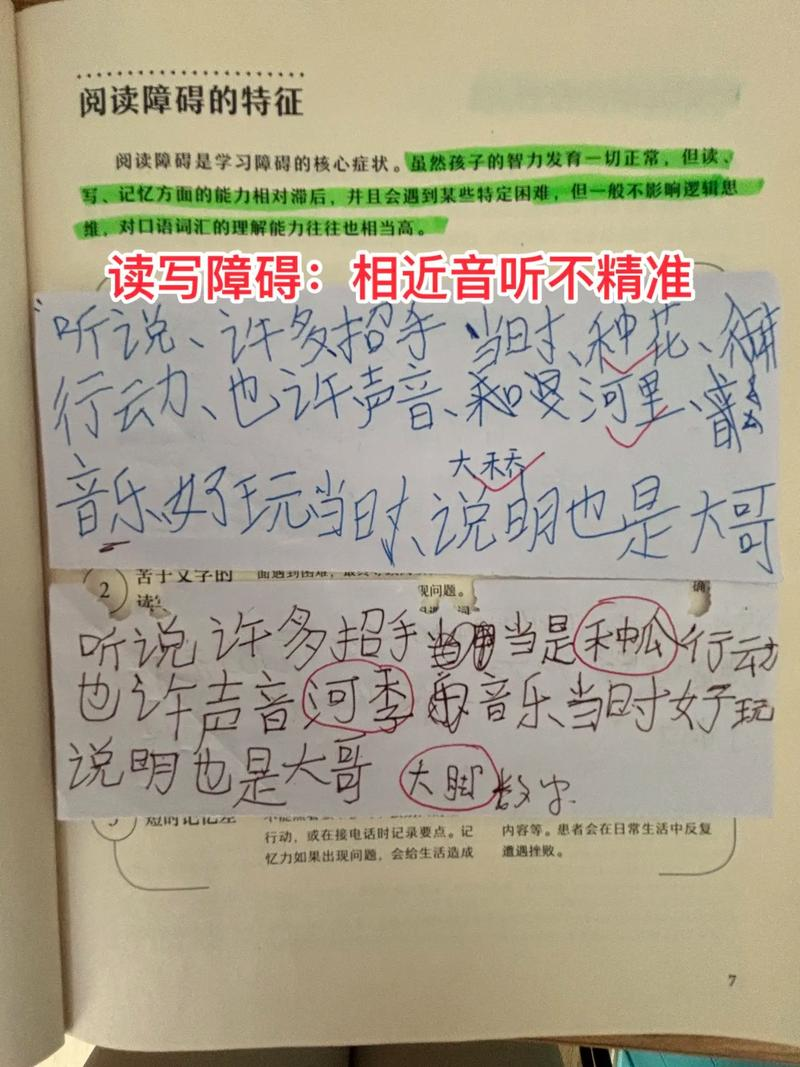 阅读障碍的特征
阅读障碍是学习障碍的核心症状。虽然孩子的智力发育一切正常，但读、
写、记忆方面的能力相对滞后，并且会遇到某些特定困难，但一般不影响逻辑思
维，对口语词汇的理解能力往往也相当高。
读写障碍：相近音听不精准
听说、许多招手 当时、种花、
行云力、也许声音、河里、
大桥
音乐好玩当时、说明也是大哥
2 苦于文字的
现问题。
确
听说许多招手 当是 种瓜 行动
也许声音 河季 音乐当时好玩
说明也是大哥 大脚 数字
短时记忆差
行动，或在接电话时记录要点。记
忆力如果出现问题，会给生活造成
内容等。患者会在日常生活中反复
遭遇挫败。
7